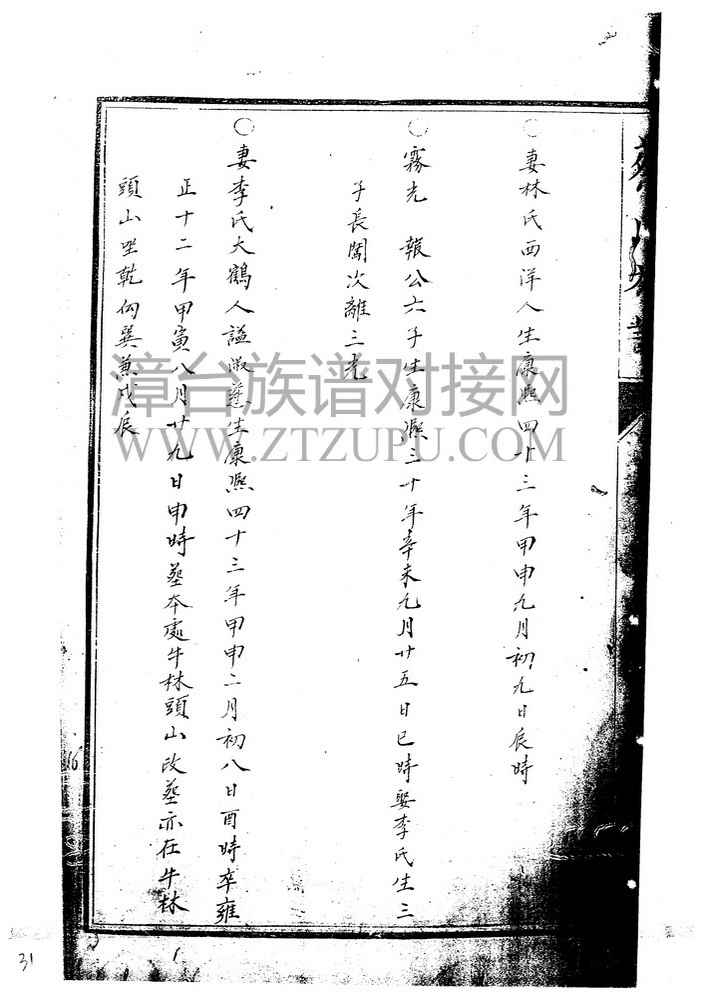 ○妻林氏西洋人生康熙四十三年甲申九月初九日辰時
○霧光 報公六子生康熙三十年辛未九月廿五日巳時娶李氏生三
子長闊次離三光
○妻李氏大鶴人謚淑蓮生康熙四十三年甲申二月初八日酉時卒雍
正十二年甲寅八月廿九日申時葬本處牛林頭山改葬亦在牛林
頭山坐乾向巽兼戌辰
漳台族谱对接网
WWW.ZTZUPU.COM
31